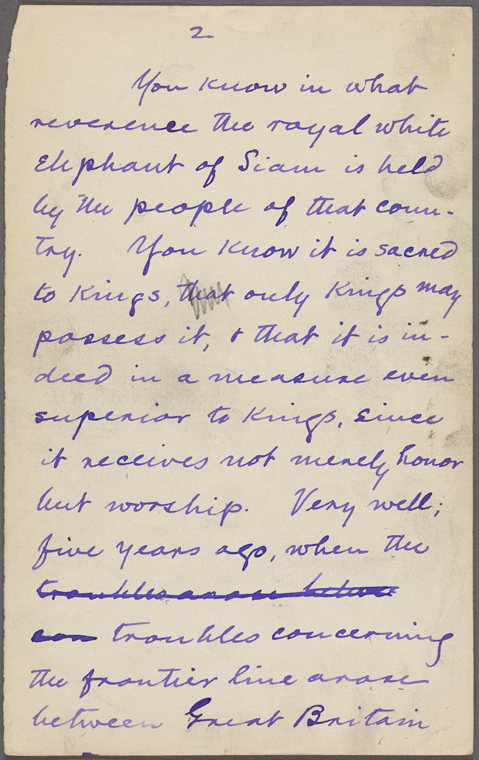 2
You know in what
reverence the royal white
elephant of Siam is held
by the people of that coun-
try. You know it is sacred
to Kings, that only Kings may
possess it, & that it is in-
deed in a measure even
superior to Kings, since
it receives not merely honor
but worship. Very well;
five years ago, when the
troubles arose betwe
een troubles concerning
the frontier line arose
between Great Britain